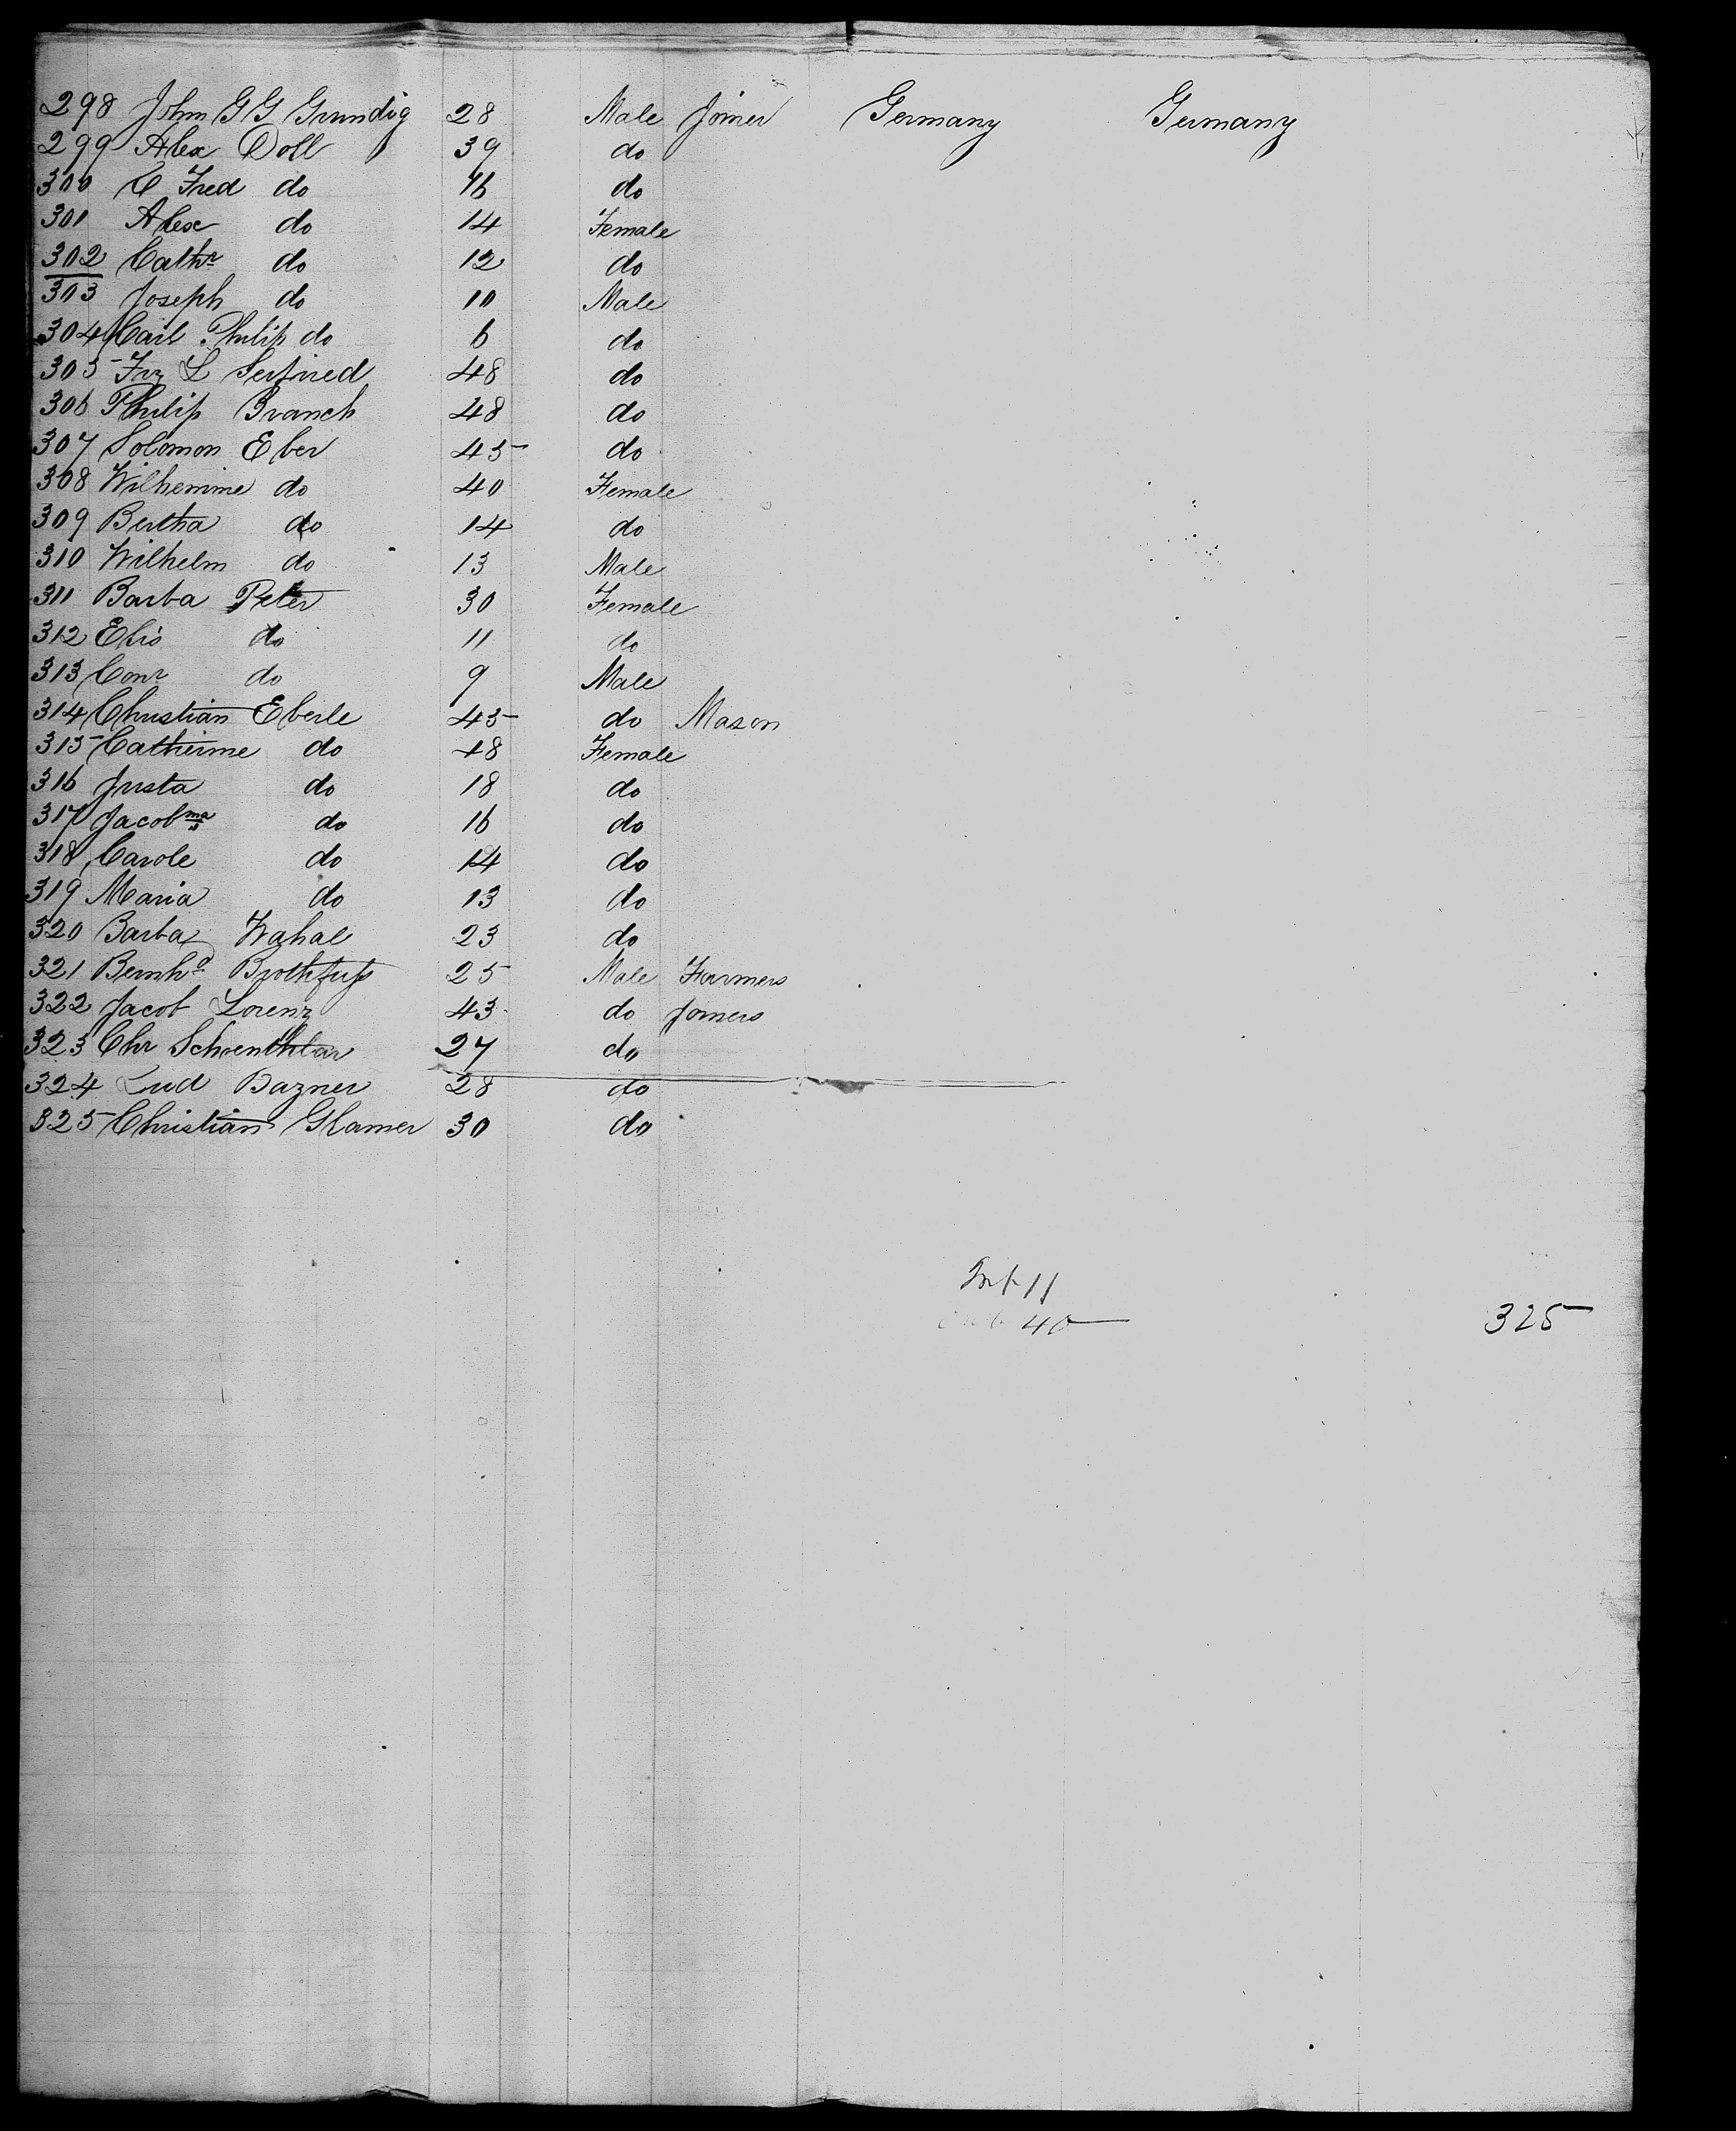 298 John G G Grundig 28 Male Joiner Germany Germany
299 Alex Doll 39 do
300 C Fred do 46 do
301 Alex do 14 Female
302 Cathe do 12 do
303 Joseph do 10 Male
304 Carl Philip do 6 do
305 Frz L 48 do
306 Philip Branch 48 do
307 Solomon Eber 45 do
308 Wilhemine do 40 Female
309 Bertha do 14 do
310 Wilhelm do 13 Male
311 Barba Peter 30 Female
312 Elis do 11 do
313 Conr do 9 Male
314 Christian Eberle 45 do Mason
315 Catherine do 48 Female
316 Justa do 18 do
317 Jacobma do 16 do
318 Carole do 14 do
319 Maria do 13 do
320 Barba Wahal 23 do
321 Bernhd Brothfuss 25 Male Farmers
322 Jacob Lorenz 43 do Joiners
323 Chr 27 do
324 Lud Bazner 28 do
325 Christian Glamer 30 do
Inf 11
40
325